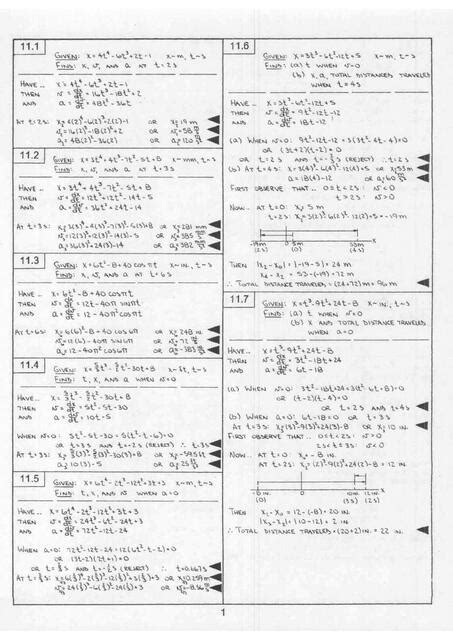 11.1
GIVEN: x=4t⁴-6t³+2t-1 x~m, t~s
FIND: x, v, AND a AT t=2s
HAVE.. x=4t⁴-6t³+2t-1
THEN v=dx/dt=16t³-18t²+2
AND a=dv/dt=48t²-36t
AT t=2s: x₂=4(2)⁴-6(2)³+2(2)-1 OR x₂=19 m
v₂=16(2)³-18(2)²+2 OR v₂=58 m/s
a₂=48(2)²-36(2) OR a₂=120 m/s²
11.2
GIVEN: x=3t⁴+4t³-7t²-5t+8 x~mm, t~s
FIND: x, v, AND a AT t=3s
HAVE.. x=3t⁴+4t³-7t²-5t+8
THEN v=dx/dt=12t³+12t²-14t-5
AND a=dv/dt=36t²+24t-14
AT t=3s: x₃=3(3)⁴+4(3)³-7(3)²-5(3)+8 OR x₃=281 mm
v₃=12(3)³+12(3)²-14(3)-5 OR v₃=385 mm/s
a₃=36(3)²+24(3)-14 OR a₃=382 mm/s²
11.3
GIVEN: x=6t²-8+40 cosπt x~in., t~s
FIND: x, v, AND a AT t=6s
HAVE.. x=6t²-8+40 cosπt
THEN v=dx/dt=12t-40π sinπt
AND a=dv/dt=12-40π² cosπt
AT t=6s: x₆=6(6)²-8+40 cos6π OR x₆=248 in.
v₆=12(6)-40π sin6π OR v₆=72 in/s
a₆=12-40π² cos6π OR a₆=-383 in/s²
11.4
GIVEN: x=5/3t³-5/2t²-30t+8 x~ft, t~s
FIND: t, x, AND a WHEN v=0
HAVE.. x=5/3t³-5/2t²-30t+8
THEN v=dx/dt=5t²-5t-30
AND a=dv/dt=10t-5
WHEN v=0: 5t²-5t-30=5(t²-t-6)=0
OR t=3s AND t=-2s (REJECT) ∴ t=3s
AT t=3s: x₃=5/3(3)³-5/2(3)²-30(3)+8 OR x₃=-59.5 ft
a₃=10(3)-5 OR a₃=25 ft/s²
11.5
GIVEN: x=6t⁴-2t³-12t²+3t+3 x~m, t~s
FIND: t, x, AND v WHEN a=0
HAVE.. x=6t⁴-2t³-12t²+3t+3
THEN v=dx/dt=24t³-6t²-24t+3
AND a=dv/dt=72t²-12t-24
WHEN a=0: 72t²-12t-24=12(6t²-t-2)=0
OR (3t-2)(2t+1)=0
OR t=2/3s AND t=-1/2s (REJECT) ∴ t=0.667s
AT t=2/3s: x=6(2/3)⁴-2(2/3)³-12(2/3)²+3(2/3)+3 OR x=0.259 m
v=24(2/3)³-6(2/3)²-24(2/3)+3 OR v=-8.56 m/s
11.6
GIVEN: x=3t³-6t²-12t+5 x~m, t~s
FIND: (a) t WHEN v=0
(b) x, a, TOTAL DISTANCE TRAVELED
WHEN t=4s
HAVE.. x=3t³-6t²-12t+5
THEN v=dx/dt=9t²-12t-12
AND a=dv/dt=18t-12
(a) WHEN v=0: 9t²-12t-12=3(3t²-4t-4)=0
OR (3t+2)(t-2)=0
OR t=2s AND t=-2/3s (REJECT) ∴ t=2s
(b) AT t=4s: x₄=3(4)³-6(4)²-12(4)+5 OR x₄=53m
a₄=18(4)-12 OR a₄=60 m/s²
FIRST OBSERVE THAT.. 0≤t<2s: v<0
t>2s: v>0
NOW.. AT t=0: x₀=5 m
t=2s: x₂=3(2)³-6(2)²-12(2)+5=-19m
-19m 0 5m 53m x
(2s) (4s)
THEN |x₂-x₀|=|-19-5|=24 m
x₄-x₂=53-(-19)=72 m
∴ TOTAL DISTANCE TRAVELED=(24+72)m=96 m
11.7
GIVEN: x=t³-9t²+24t-8 x~in., t~s
FIND: (a) t WHEN v=0
(b) x AND TOTAL DISTANCE TRAVELED
WHEN a=0
HAVE.. x=t³-9t²+24t-8
THEN v=dx/dt=3t²-18t+24
AND a=dv/dt=6t-18
(a) WHEN v=0: 3t²-18t+24=3(t²-6t+8)=0
OR (t-2)(t-4)=0
OR t=2s AND t=4s
(b) WHEN a=0: 6t-18=0 OR t=3s
AT t=3s: x₃=(3)³-9(3)²+24(3)-8 OR x₃=10 in.
FIRST OBSERVE THAT.. 0≤t<2s: v>0
2s<t≤3s: v<0
NOW.. AT t=0: x₀=-8 in.
AT t=2s: x₂=(2)³-9(2)²+24(2)-8=12 in.
-8 in. 0 10 in. 12 in. x
(0) (3s) (2s)
THEN x₂-x₀=12-(-8)=20 in.
|x₃-x₂|=|10-12|=2 in.
∴ TOTAL DISTANCE TRAVELED=(20+2)in.=22 in.
1